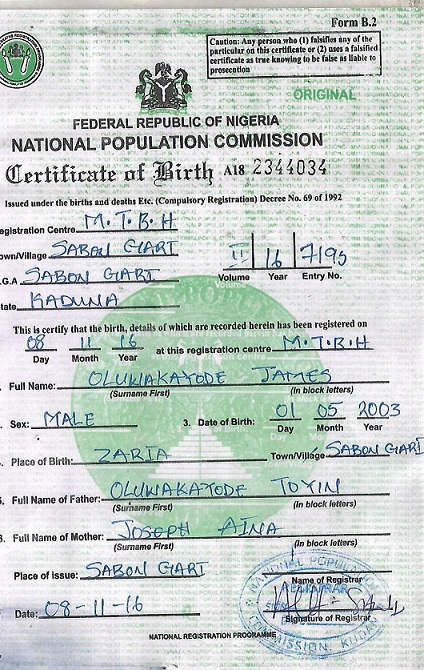 Form B.2
Caution: Any person who (1) falsifies any of the
particular on this certificate or (2) uses a falsified
certificate as true knowing to be false as liable to
prosecution
ORIGINAL
FEDERAL REPUBLIC OF NIGERIA
NATIONAL POPULATION COMMISSION
Certificate of Birth A18 2344034
Issued under the births and deaths Etc. (Compulsory Registration) Decree No. 69 of 1992
egistration Centre M.T.B.H
own/Village SABON GARI
.G.A SABON GARI
II 16 7195
Volume Year Entry No.
tate KADUNA
This is certify that the birth, details of which are recorded herein has been registered on
08 11 16 at this registration centre M.T.B.H
Day Month Year
Full Name: OLUWAKAYODE JAMES
(Surname First) (In block letters)
Sex: MALE 3. Date of Birth: 01 05 2003
Day Month Year
Place of Birth: ZARIA Town/Village SABON GARI
Full Name of Father: OLUWAKAYODE TOYIN
(Surname First) (In block letters)
Full Name of Mother: JOSEPH AINA
(Surname First) (In block letters)
Place of issue: SABON GARI
Name of Registrar
Date: 08-11-16
Signature of Registrar
NATIONAL REGISTRATION PROGRAMME